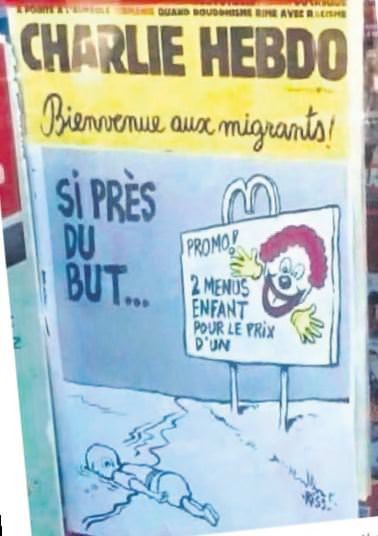 QUAND BOUDDHISME RIME AVEC
CHARLIE HEBDO
Bienvenue aux migrants!
SI PRÈS
DU
BUT...
PROMO!
2 MENUS
ENFANT
POUR LE PRIX
D'UN